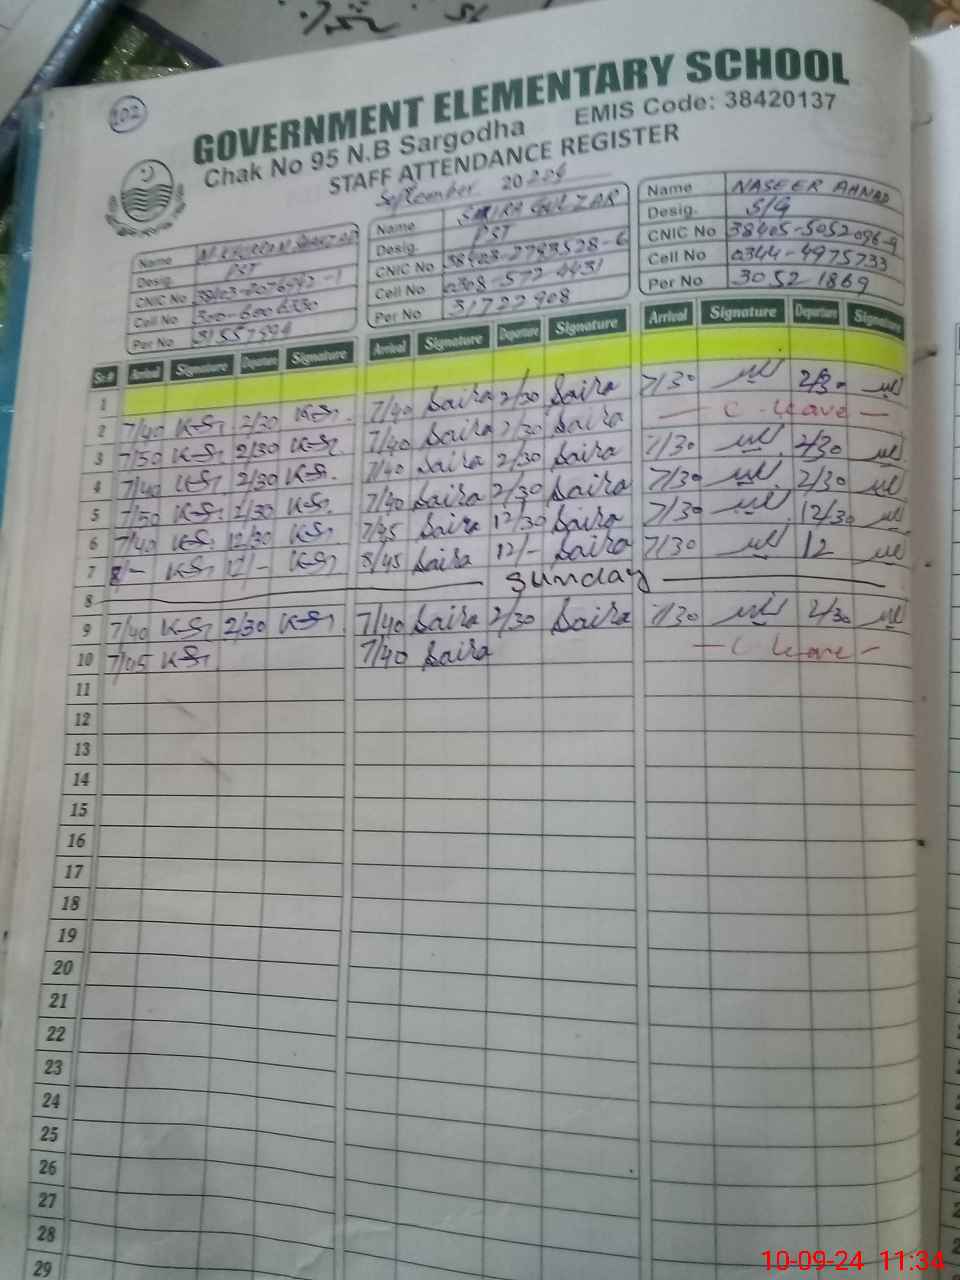 102
GOVERNMENT ELEMENTARY SCHOOL
Chak No 95 N.B Sargodha EMIS Code: 38420137
STAFF ATTENDANCE REGISTER
September 2024
Name
Desig. PST
CNIC No
Cell No 300-6006330
Per No 31557594
Name SAIRA GULZAR
Desig. PST
CNIC No 38403-2793528-6
Cell No 0308-572 4431
Per No 31722908
Name NASEER AHMAD
Desig. S/G
CNIC No 38405-5052096-9
Cell No 0344-4975733
Per No 30521869
Sr.# Arrival Signature Departure Signature Arrival Signature Departure Signature Arrival Signature Departure Signature
1
2 7/40 2/30 7/40 Saira 2/30 Saira 7/30 2/30
3 7/50 2/30 7/40 Saira 2/30 Saira — C. Leave —
4 7/40 2/30 7/40 Saira 2/30 Saira 7/30 2/30
5 7/50 2/30 7/40 Saira 2/30 Saira 7/30 2/30
6 7/40 12/30 7/45 Saira 12/30 Saira 7/30 12/30
7 8/- 12/- 8/45 Saira 12/- Saira 7/30 12
8 Sunday
9 7/40 2/30 7/40 Saira 2/30 Saira 7/30 2/30
10 7/45 7/40 Saira — C Leave —
11
12
13
14
15
16
17
18
19
20
21
22
23
24
25
26
27
28
29
10-09-24 11:34